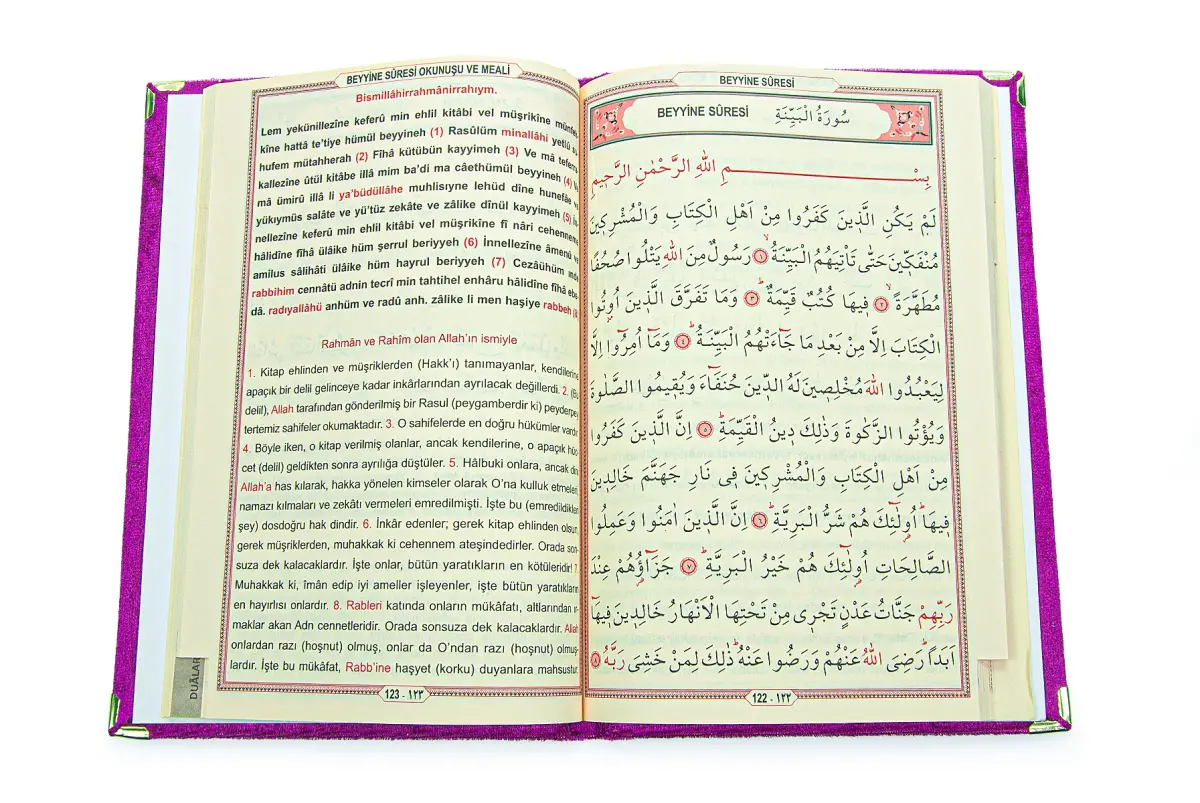 BEYYİNE SÛRESİ OKUNUŞU VE MEALİ
Bismillâhirrahmânirrahıym.
Lem yekünillezîne keferû min ehlil kitâbi vel müşrikîne münfek
kîne hattâ te'tiye hümül beyyineh (1) Rasûlüm minallâhi yetlû
hufem mütahherah (2) Fîhâ kütübün kayyimeh (3) Ve mâ teferra
kallezîne ûtül kitâbe illâ mim ba'di ma câethümül beyyineh (4)
mâ ümirû illâ li ya'büdüllâhe muhlisıyne lehüd dîne hunefâe
yükıymüs salâte ve yü'tüz zekâte ve zâlike dînül kayyimeh (5)
nellezîne keferû min ehlil kitâbi vel müşrikîne fî nâri cehenneme
hâlidîne fîhâ ülâike hüm şerrul beriyyeh (6) İnnellezîne âmenû
amilus sâlihâti ülâike hüm hayrul beriyyeh (7) Cezâühüm ınde
rabbihim cennâtü adnin tecrî min tahtihel enhâru hâlidîne fîhâ ebe
dâ. radıyallâhü anhüm ve radû anh. zâlike li men haşiye rabbeh
Rahmân ve Rahîm olan Allah'ın ismiyle
1. Kitap ehlinden ve müşriklerden (Hakk'ı) tanımayanlar, kendilerine
apaçık bir delil gelinceye kadar inkârlarından ayrılacak değillerdi. 2. (Bu
delil), Allah tarafından gönderilmiş bir Rasul (peygamberdir ki) peyderpey
tertemiz sahifeler okumaktadır. 3. O sahifelerde en doğru hükümler vardır.
4. Böyle iken, o kitap verilmiş olanlar, ancak kendilerine, o apaçık hüc-
cet (delil) geldikten sonra ayrılığa düştüler. 5. Hâlbuki onlara, ancak din
Allah'a has kılarak, hakka yönelen kimseler olarak O'na kulluk etmeleri,
namazı kılmaları ve zekâtı vermeleri emredilmişti. İşte bu (emredildikleri
şey) dosdoğru hak dindir. 6. İnkâr edenler; gerek kitap ehlinden olsun
gerek müşriklerden, muhakkak ki cehennem ateşindedirler. Orada son-
suza dek kalacaklardır. İşte onlar, bütün yaratıkların en kötüleridir! 7.
Muhakkak ki, îmân edip iyi ameller işleyenler, işte bütün yaratıkların
en hayırlısı onlardır. 8. Rableri katında onların mükâfatı, altlarından ır-
maklar akan Adn cennetleridir. Orada sonsuza dek kalacaklardır. Allah
onlardan razı (hoşnut) olmuş, onlar da O'ndan razı (hoşnut) olmuş-
lardır. İşte bu mükâfat, Rabb'ine haşyet (korku) duyanlara mahsustur.
123 - ١٢٣
DUÂLAR
BEYYİNE SÛRESİ
BEYYİNE SÛRESİ سُورَةُ الْبَيِّنَةِ
بِسْمِ اللهِ الرَّحْمٰنِ الرَّحِيمِ
لَمْ يَكُنِ الَّذِينَ كَفَرُوا مِنْ اَهْلِ الْكِتَابِ وَالْمُشْرِكِينَ
مُنْفَكِّينَ حَتّٰى تَأْتِيَهُمُ الْبَيِّنَةُ ﴿١﴾ رَسُولٌ مِنَ اللهِ يَتْلُوا صُحُفًا
مُطَهَّرَةً ﴿٢﴾ فِيهَا كُتُبٌ قَيِّمَةٌ ﴿٣﴾ وَمَا تَفَرَّقَ الَّذِينَ اُوتُوا
الْكِتَابَ اِلَّا مِنْ بَعْدِ مَا جَاءَتْهُمُ الْبَيِّنَةُ ﴿٤﴾ وَمَا اُمِرُوا اِلَّا
لِيَعْبُدُوا اللهَ مُخْلِصِينَ لَهُ الدِّينَ حُنَفَاءَ وَيُقِيمُوا الصَّلٰوةَ
وَيُؤْتُوا الزَّكٰوةَ وَذٰلِكَ دِينُ الْقَيِّمَةِ ﴿٥﴾ اِنَّ الَّذِينَ كَفَرُوا
مِنْ اَهْلِ الْكِتَابِ وَالْمُشْرِكِينَ فِي نَارِ جَهَنَّمَ خَالِدِينَ
فِيهَا اُولٰئِكَ هُمْ شَرُّ الْبَرِيَّةِ ﴿٦﴾ اِنَّ الَّذِينَ اٰمَنُوا وَعَمِلُوا
الصَّالِحَاتِ اُولٰئِكَ هُمْ خَيْرُ الْبَرِيَّةِ ﴿٧﴾ جَزَاؤُهُمْ عِنْدَ
رَبِّهِمْ جَنَّاتُ عَدْنٍ تَجْرِي مِنْ تَحْتِهَا الْاَنْهَارُ خَالِدِينَ فِيهَا
اَبَدًا رَضِيَ اللهُ عَنْهُمْ وَرَضُوا عَنْهُ ذٰلِكَ لِمَنْ خَشِيَ رَبَّهُ ﴿٨﴾
122 - ١٢٢